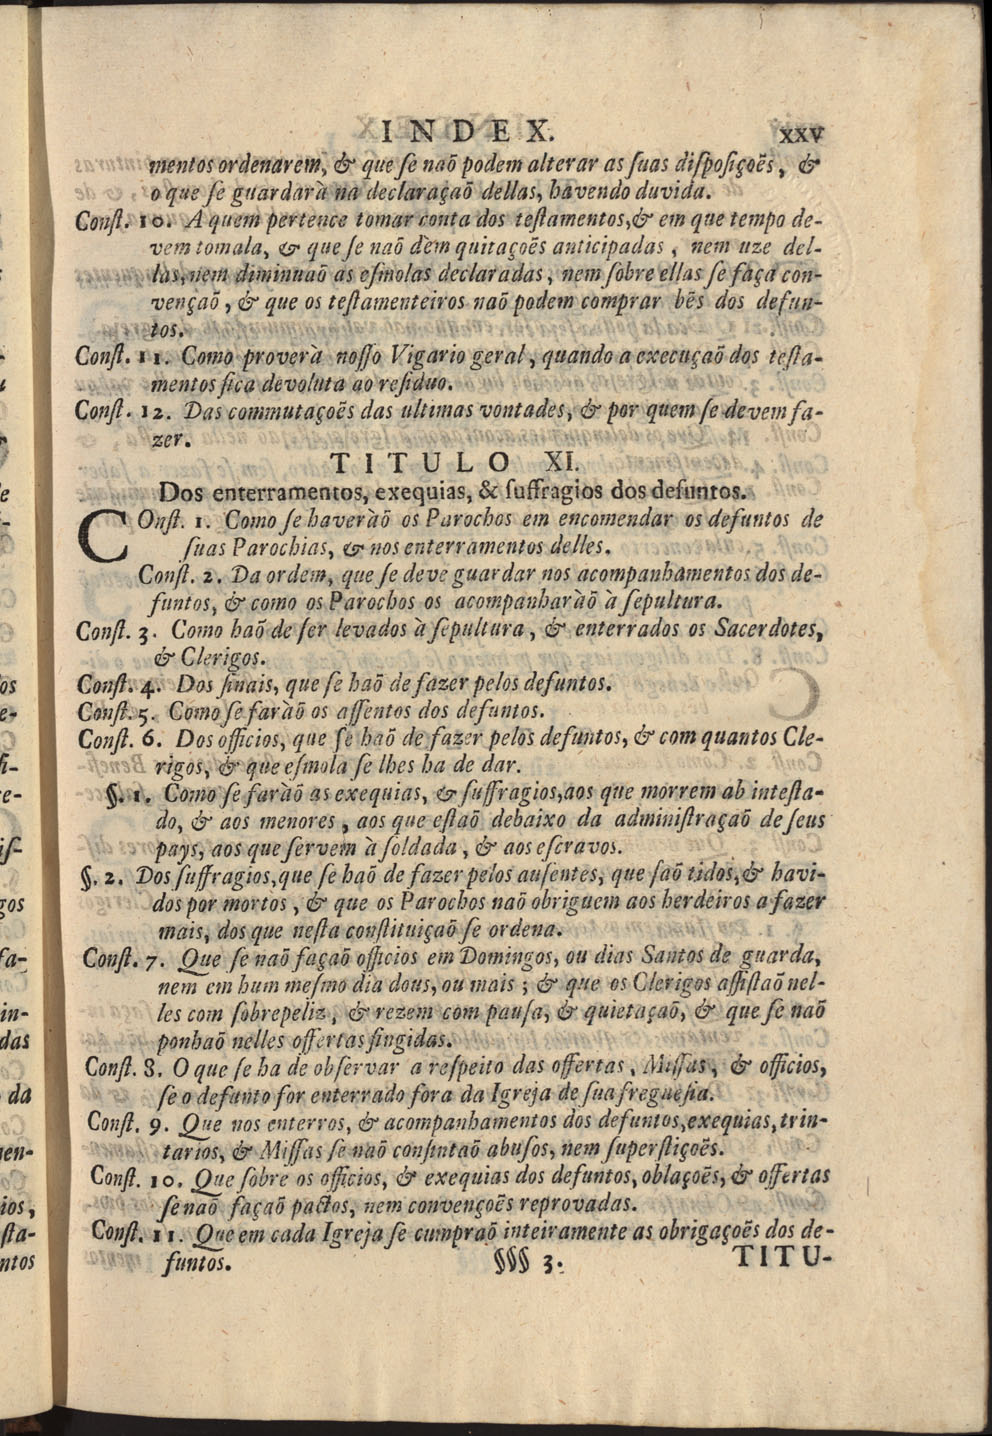 INDEX. XXV
mentos ordenarem, & que ſe naõ podem alterar as ſuas diſpoſiçoẽs, &
o que ſe guardarà na declaraçaõ dellas, havendo duvida.
Conſt. 10. A quem pertence tomar conta dos teſtamentos, & em que tempo de-
vem tomala, & que ſe naõ dem quitaçoẽs anticipadas, nem uze del-
las, nem diminuaõ as eſmolas declaradas, nem ſobre ellas ſe faça con-
vençaõ, & que os teſtamenteiros naõ podem comprar bẽs dos defun-
tos.
Conſt. 11. Como proverà noſſo Vigario geral, quando a execuçaõ dos teſta-
mentos fica devoluta ao reſiduo.
Conſt. 12. Das commutaçoẽs das ultimas vontades, & por quem ſe devem fa-
zer.
TITULO XI.
Dos enterramentos, exequias, & ſuffragios dos defuntos.
COnſt. 1. Como ſe haveràõ os Parochos em encomendar os defuntos de
ſuas Parochias, & nos enterramentos delles.
Conſt. 2. Da ordem, que ſe deve guardar nos acompanhamentos dos de-
funtos, & como os Parochos os acompanharàõ à ſepultura.
Conſt. 3. Como haõ de ſer levados à ſepultura, & enterrados os Sacerdotes,
& Clerigos.
Conſt. 4. Dos ſinais, que ſe haõ de fazer pelos defuntos.
Conſt. 5. Como ſe faràõ os aſſentos dos defuntos.
Conſt. 6. Dos officios, que ſe haõ de fazer pelos defuntos, & com quantos Cle-
rigos, & que eſmola ſe lhes ha de dar.
§. 1. Como ſe faràõ as exequias, & ſuffragios, aos que morrem ab inteſta-
do, & aos menores, aos que eſtaõ debaixo da adminiſtraçaõ de ſeus
pays, aos que ſervem à ſoldada, & aos eſcravos.
§. 2. Dos ſuffragios, que ſe haõ de fazer pelos auſentes, que ſaõ tidos, & havi-
dos por mortos, & que os Parochos naõ obriguem aos herdeiros a fazer
mais, dos que neſta conſtituiçaõ ſe ordena.
Conſt. 7. Que ſe naõ façaõ officios em Domingos, ou dias Santos de guarda,
nem em hum meſmo dia dous, ou mais; & que os Clerigos aſſiſtaõ nel-
les com ſobrepeliz, & rezem com pauſa, & quietaçaõ, & que ſe naõ
ponhaõ nelles offertas fingidas.
Conſt. 8. O que ſe ha de obſervar a reſpeito das offertas, Miſſas, & officios,
ſe o defunto for enterrado fora da Igreja de ſua fregueſia.
Conſt. 9. Que nos enterros, & acompanhamentos dos defuntos, exequias, trin-
tarios, & Miſſas ſe naõ conſintaõ abuſos, nem ſuperſtiçoẽs.
Conſt. 10. Que ſobre os officios, & exequias dos defuntos, oblaçoẽs, & offertas
ſe naõ façaõ pactos, nem convençoẽs reprovadas.
Conſt. 11. Que em cada Igreja ſe cumpraõ inteiramente as obrigaçoẽs dos de-
funtos. §§§ 3. TITU-